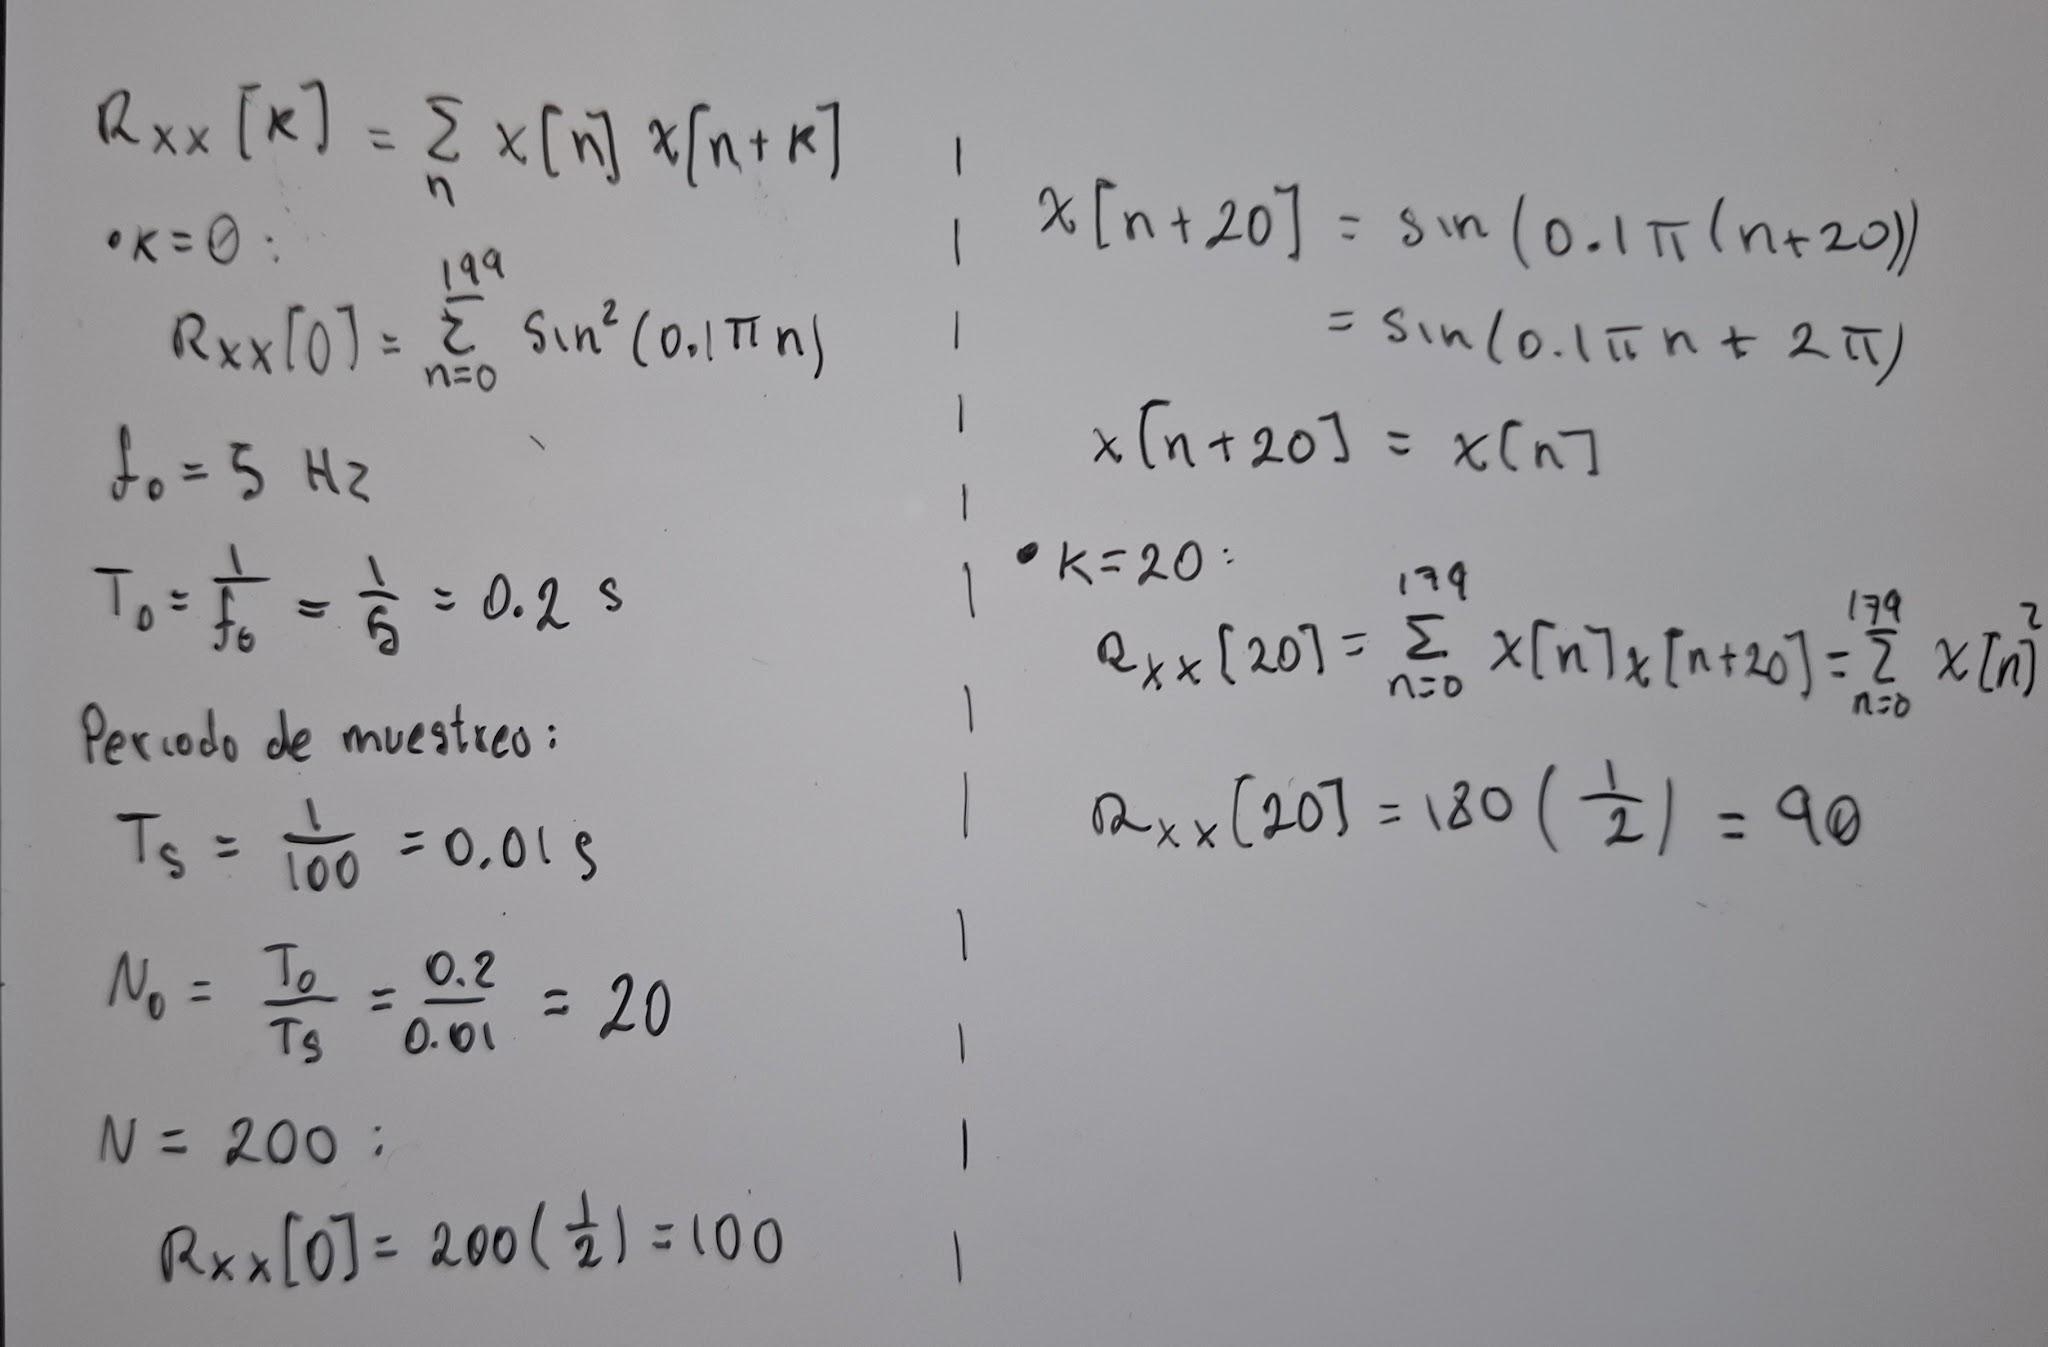 Rxx [k] = Σ_n x[n] x[n+k]
• k=0 :
Rxx[0] = Σ_{n=0}^{199} Sin²(0.1πn)
f₀ = 5 Hz
T₀ = 1/f₀ = 1/5 = 0.2 s
Periodo de muestreo:
Ts = 1/100 = 0.01 s
N₀ = T₀/Ts = 0.2/0.01 = 20
N = 200 :
Rxx[0] = 200(1/2) = 100
x[n+20] = sin(0.1π(n+20))
= sin(0.1πn + 2π)
x[n+20] = x[n]
• k=20 :
Rxx[20] = Σ_{n=0}^{179} x[n]x[n+20] = Σ_{n=0}^{179} x[n]²
Rxx[20] = 180(1/2) = 90